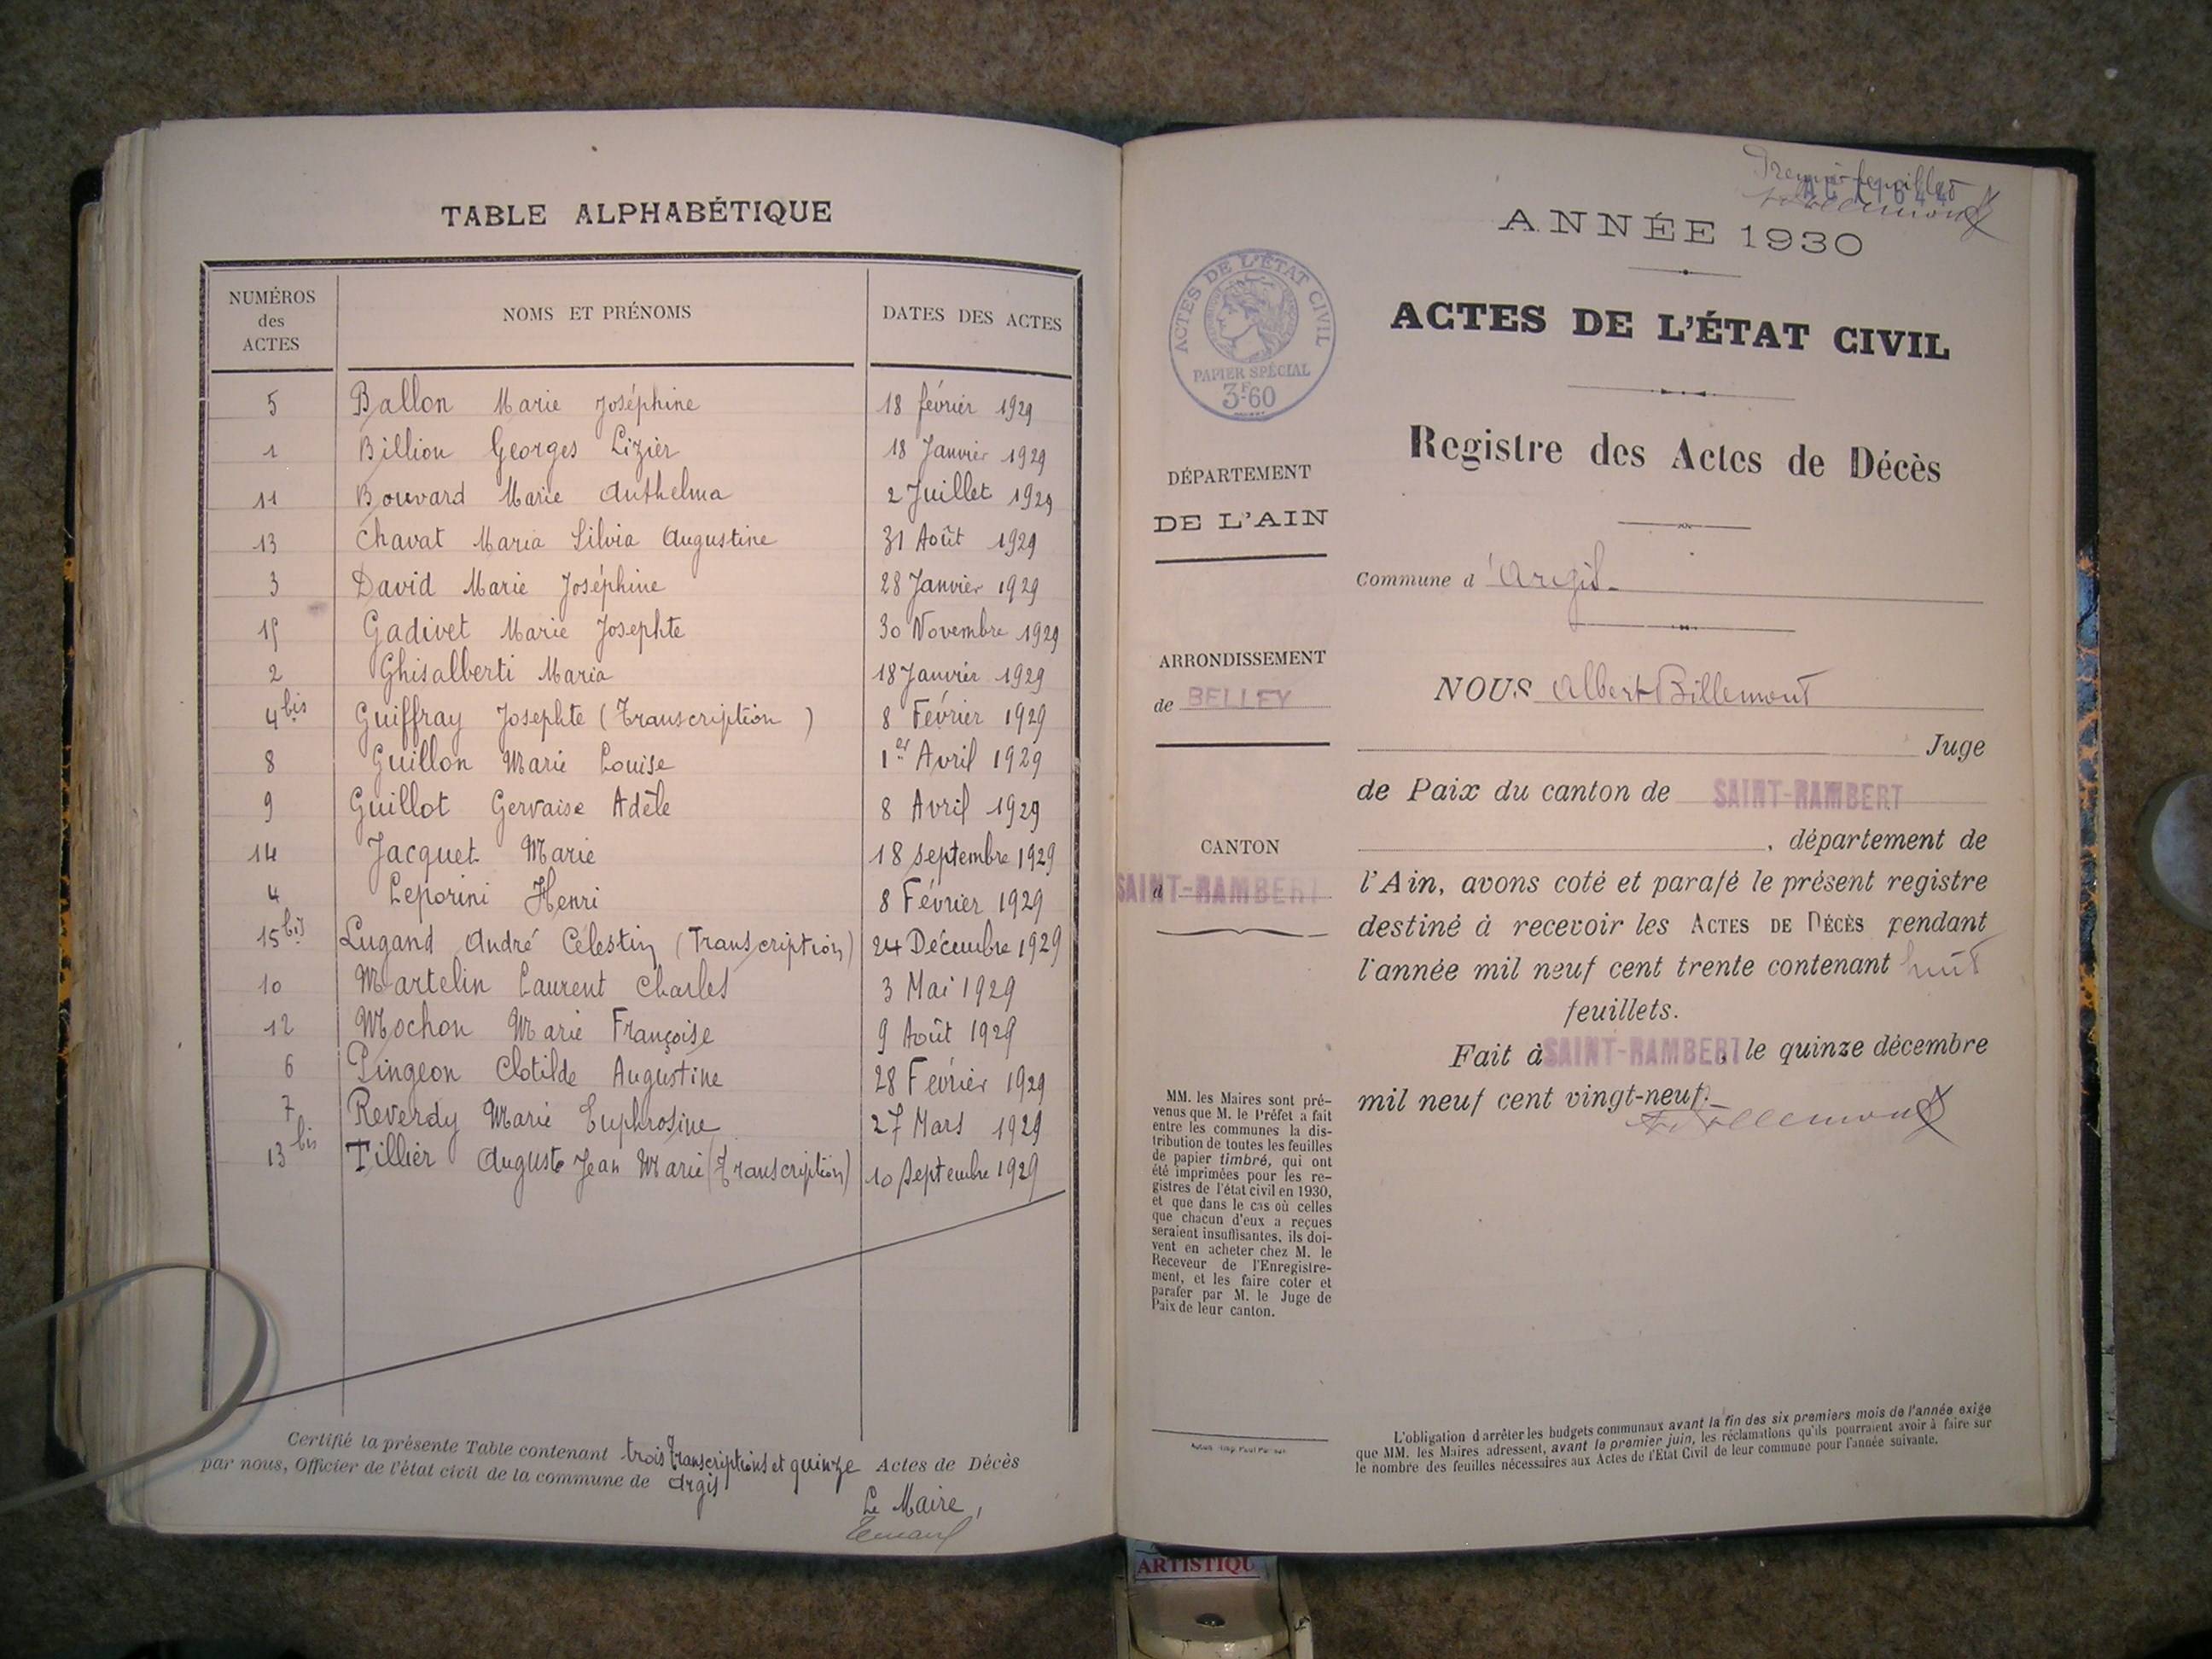 TABLE ALPHABÉTIQUE
NUMÉROS des ACTES NOMS ET PRÉNOMS DATES DES ACTES
5 Ballon Marie Joséphine 18 février 1929
1 Billion Georges Lizier 18 Janvier 1929
11 Bouvard Marie Anthelma 2 Juillet 1929
13 Chavat Maria Silvia Augustine 31 Août 1929
3 David Marie Joséphine 28 Janvier 1929
15 Gadivet Marie Josephte 30 Novembre 1929
2 Ghisalberti Maria 18 Janvier 1929
4 bis Guiffray Josephte (Transcription) 8 Février 1929
8 Guillon Marie Louise 1er Avril 1929
9 Guillot Gervaise Adèle 8 Avril 1929
14 Jacquet Marie 18 septembre 1929
4 Leporini Henri 8 Février 1929
15 bis Lugand André Célestin (Transcription) 24 Décembre 1929
10 Martelin Laurent Charles 3 Mai 1929
12 Mochon Marie Françoise 9 Août 1929
6 Pingeon Clotilde Augustine 28 Février 1929
7 Reverdy Marie Euphrosine 27 Mars 1929
13 bis Tillier Auguste Jean Marie (Transcription) 10 septembre 1929
Certifié la présente Table contenant trois transcriptions et quinze Actes de Décès
par nous, Officier de l'état civil de la commune de Argis
Le Maire,
Premier feuillet
ANNÉE 1930
ACTES DE L'ÉTAT CIVIL
PAPIER SPÉCIAL
3F60
ACTES DE L'ÉTAT CIVIL
Registre des Actes de Décès
DÉPARTEMENT
DE L'AIN
Commune d'Argis
ARRONDISSEMENT
de BELLEY
NOUS Albert Billemont
Juge
de Paix du canton de SAINT-RAMBERT
, département de
CANTON
d SAINT-RAMBERT
l'Ain, avons coté et parafé le présent registre
destiné à recevoir les ACTES DE DÉCÈS pendant
l'année mil neuf cent trente contenant huit
feuillets.
Fait à SAINT-RAMBERT, le quinze décembre
mil neuf cent vingt-neuf.
MM. les Maires sont pré-
venus que M. le Préfet a fait
entre les communes la dis-
tribution de toutes les feuilles
de papier timbré, qui ont
été imprimées pour les re-
gistres de l'état civil en 1930,
et que dans le cas où celles
que chacun d'eux a reçues
seraient insuffisantes, ils doi-
vent en acheter chez M. le
Receveur de l'Enregistre-
ment, et les faire coter et
parafer par M. le Juge de
Paix de leur canton.
L'obligation d'arrêter les budgets communaux avant la fin des six premiers mois de l'année exige
que MM. les Maires adressent, avant le premier juin, les réclamations qu'ils pourraient avoir à faire sur
le nombre des feuilles nécessaires aux Actes de l'État Civil de leur commune pour l'année suivante.
ARTISTIQU